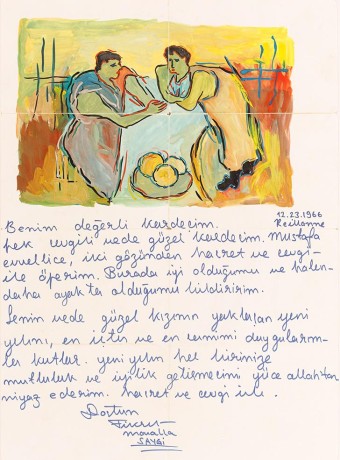 12.23.1966
Reillanne
Benim değerli kardecim.
pek cevgili vede güzel kardecim. Mustafa
evvellice, iki gözünden hacret ve cevgi-
ile öperim. Burada iyi olduğumu ve halen-
daha ayakta olduğumu bildiririm.
Senin vede güzel kızının yaklaçan yeni
yılını, en içten ve en camimi duygularım-
la kutlar. yeni yılın hel birinize
mutluluk ve iyilik getirmecini yüce allahtan
niyaz ederim. hacret ve cevgi ile.
Dostun
Fikret
moualla
SAYGI